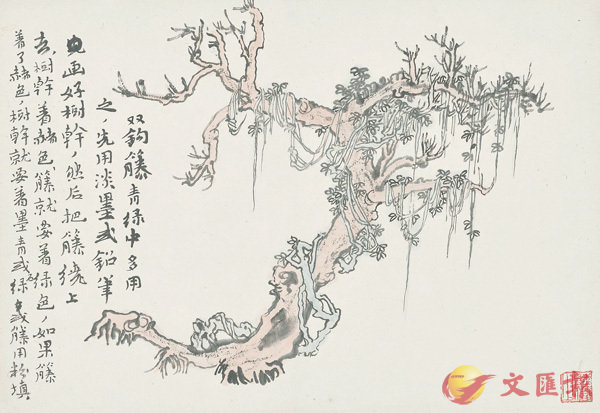 双鈎籐青绿中多用
之，先用淡墨或鉛筆
画好樹幹，然后把籐绕上
去，樹幹着赭色籐就要着绿色，如果籐
着了赭色，樹幹就要着墨青或绿色或籐用粉填
文匯報